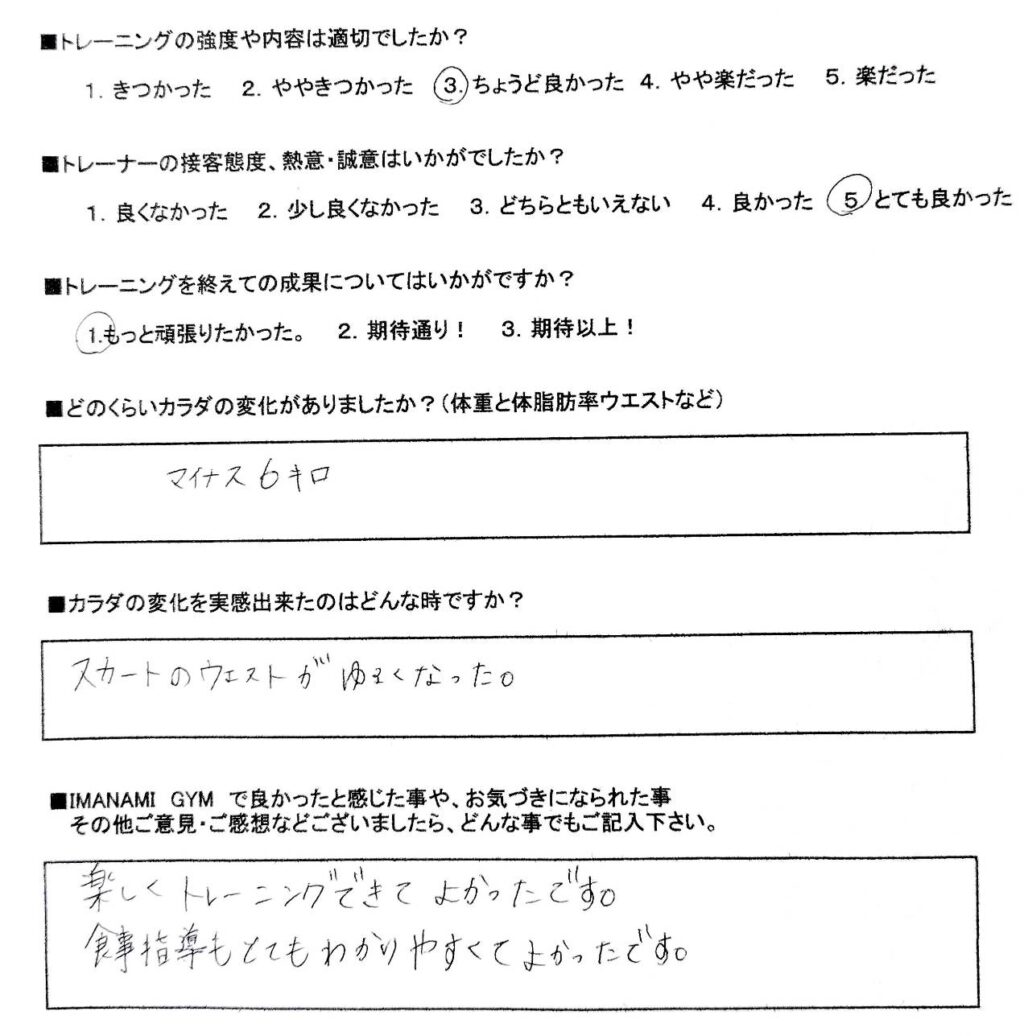 ■トレーニングの強度や内容は適切でしたか？
1. きつかった 2. ややきつかった 3. ちょうど良かった 4. やや楽だった 5. 楽だった
■トレーナーの接客態度、熱意・誠意はいかがでしたか？
1. 良くなかった 2. 少し良くなかった 3. どちらともいえない 4. 良かった 5 とても良かった
■トレーニングを終えての成果についてはいかがですか？
1.もっと頑張りたかった。 2. 期待通り！ 3. 期待以上！
■どのくらいカラダの変化がありましたか？（体重と体脂肪率ウエストなど）
マイナス6キロ
■カラダの変化を実感出来たのはどんな時ですか？
スカートのウエストがゆるくなった。
■IMANAMI GYM で良かったと感じた事や、お気づきになられた事
その他ご意見・ご感想などございましたら、どんな事でもご記入下さい。
楽しくトレーニングできてよかったです。
食事指導もとてもわかりやすくてよかったです。